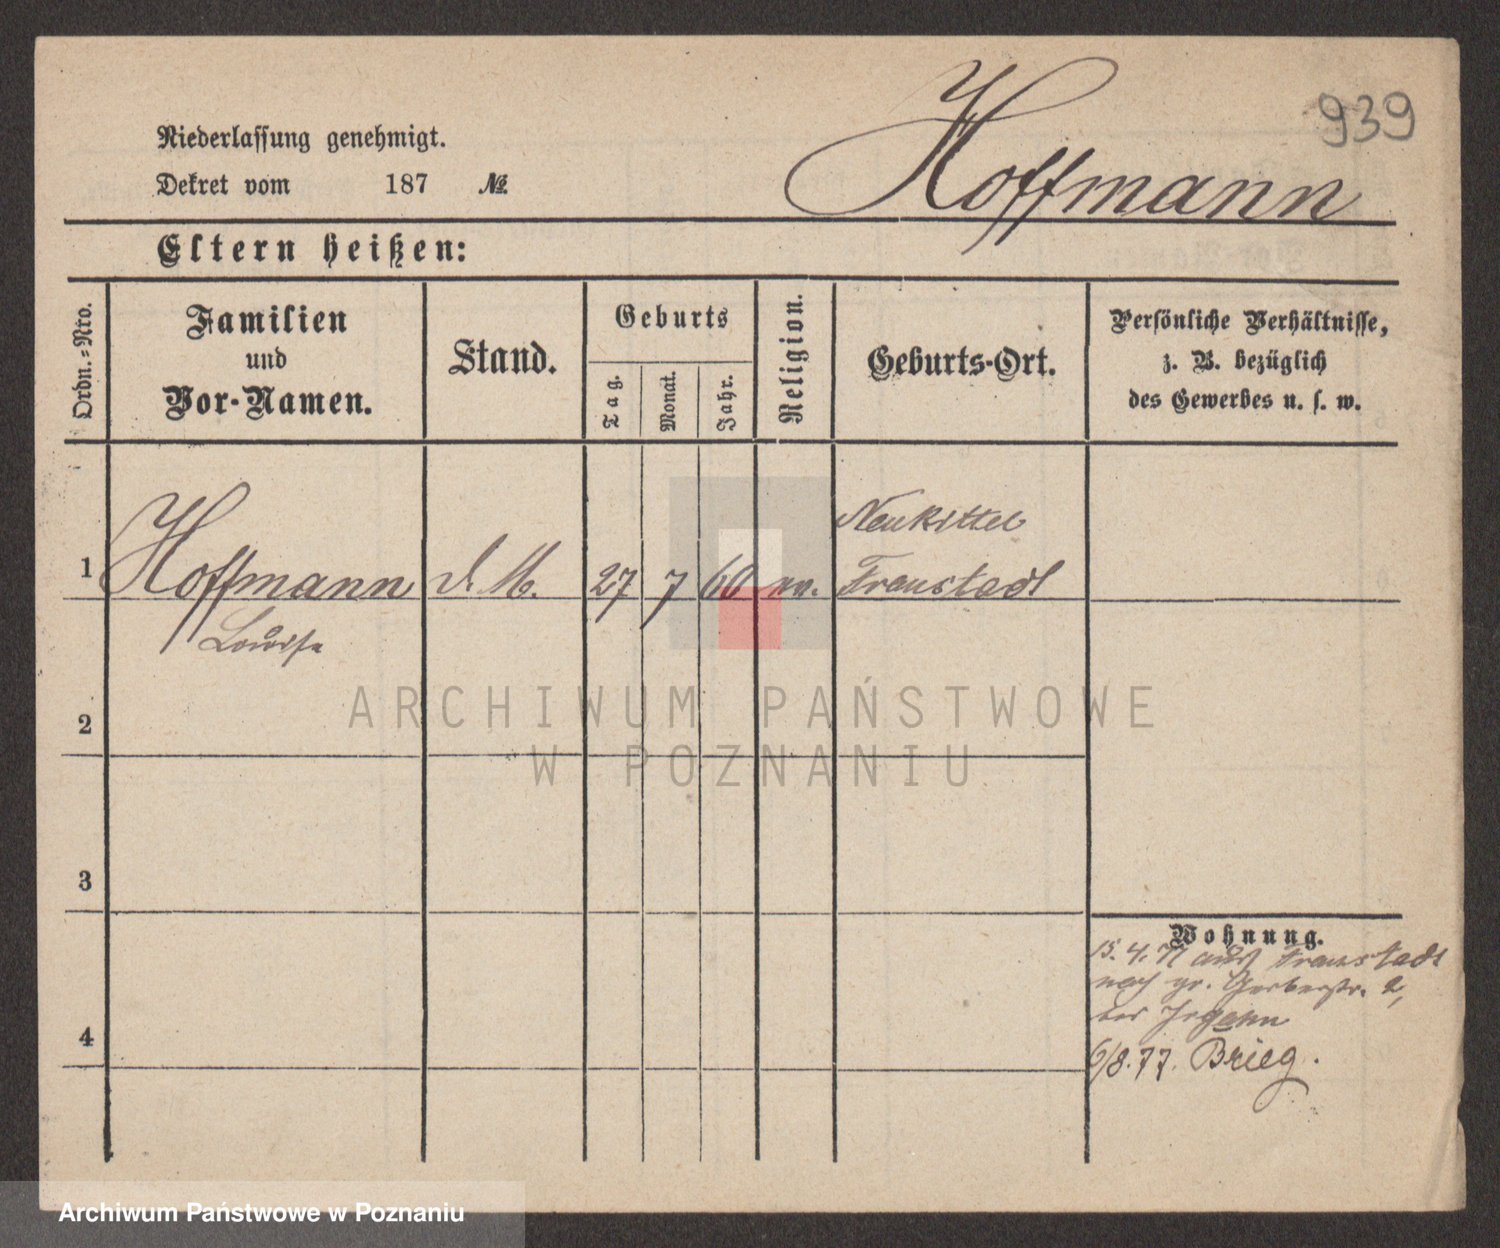 939
Hoffmann
Niederlassung genehmigt.
Dekret vom 187 №.
Eltern heißen:
Ordn.=Nro.
Familien
und
Vor-Namen.
Stand.
Geburts
Tag.
Monat.
Jahr.
Religion.
Geburts-Ort.
Persönliche Verhältnisse,
z. B. bezüglich
des Gewerbes u. s. w.
Neukittel
1 Hoffmann d. M. 27 7 60 Fraustadt
Louise
ARCHIWUM PAŃSTWOWE
W POZNANIU
2
3
4
Wohnung.
15. 4. 77 aus Fraustadt
nach gr. Gerberstr. 2,
bei
6/8. 77. Brieg.
Archiwum Państwowe w Poznaniu